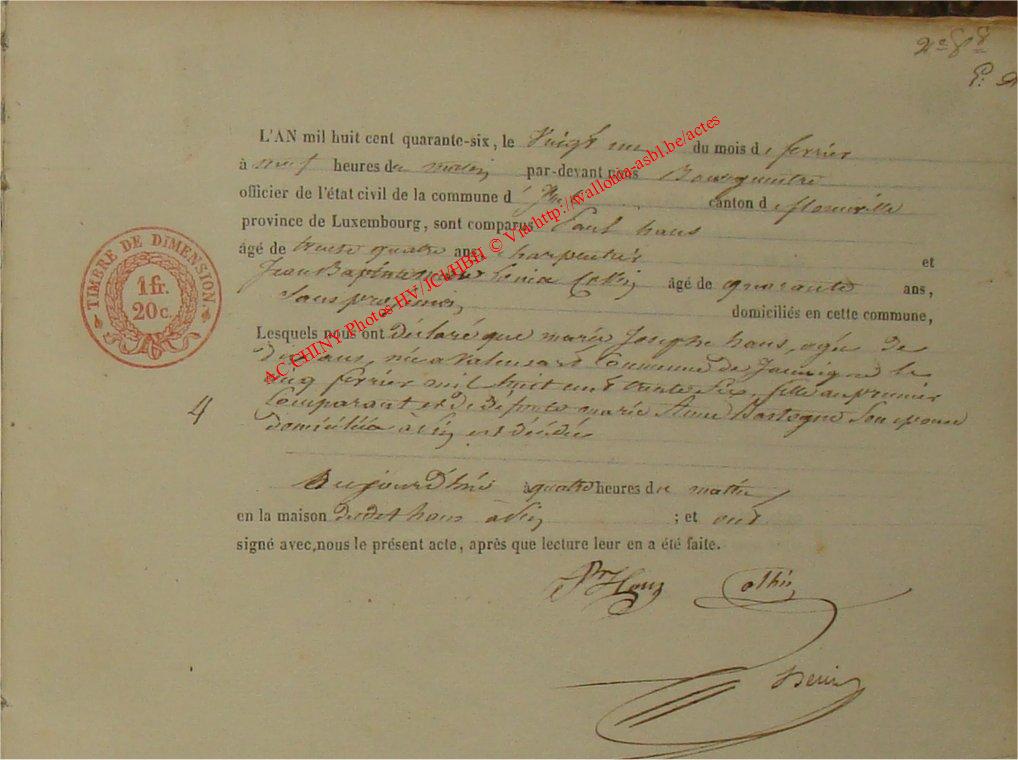 N° 8 8
L'AN mil huit cent quarante-six, le Vingt un du mois de ferrier
à neuf heures du matin par-devant nous Bourguemetre
officier de l'état civil de la commune d' canton de florenville
province de Luxembourg, sont comparus Paul haus
âgé de trente quatre ans charpentier et
Jean Baptiste âgé de quarante ans,
Sans profession domiciliés en cette commune,
Lesquels nous ont déclaré que marie Joseph haus, agée de
dix ans, née a Valensart Commune de Jamoigne le
cinq ferrier mil huit cent trente six, fille au premier
Comparant et de marie Bastogne Son epouse
domiciliée à est décédée
Aujourd'hui à quatre heures du matin
en la maison dudit haus à ; et ont
signé avec,nous le présent acte, après que lecture leur en a été faite.
TIMBRE DE DIMENSION.
1 fr.
20 c.
4
AC CHINY Photos HV/JCV/HBH © Via http://wallonia-asbl.be/actes